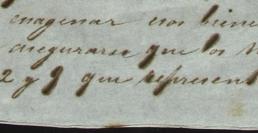 enagenar esos biene
asegurarse que los
2 y 9 que represent